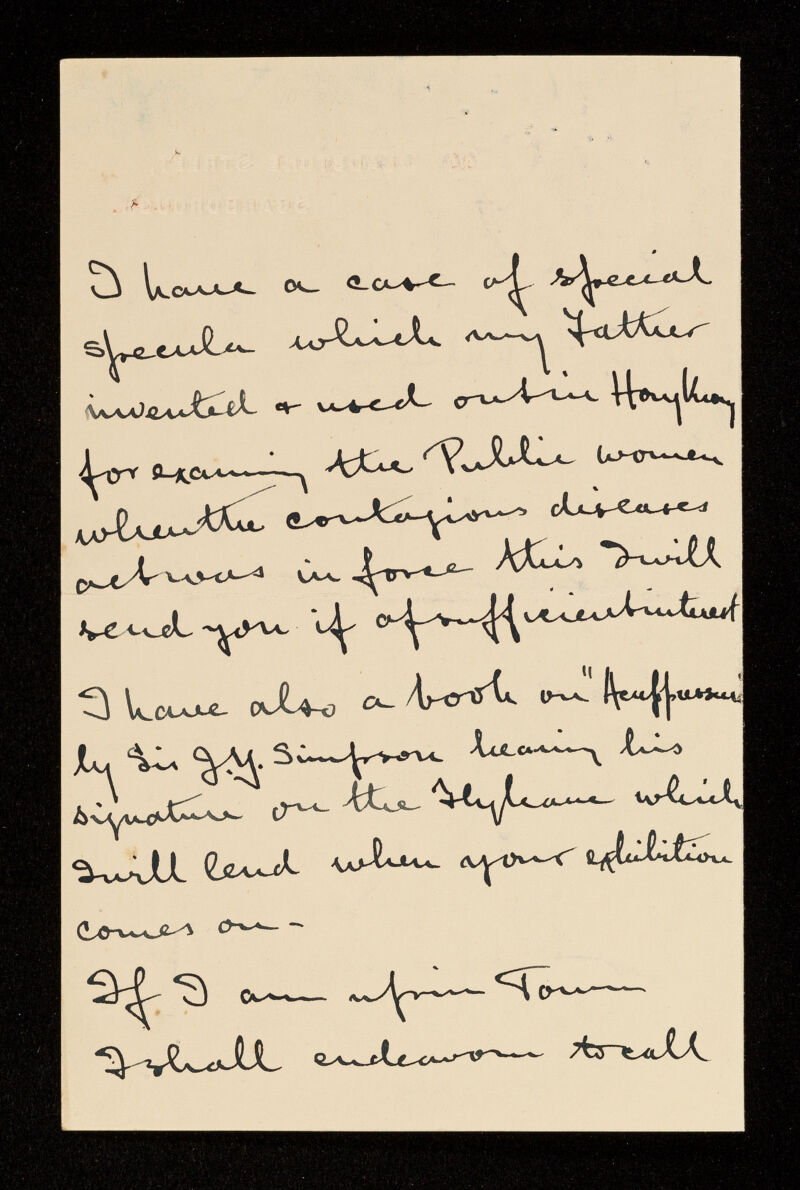 I have a case of special
specula which my Father
invented & used out in Hong Kong
for examining the Public women
when the contagious diseases
act was in force this I will
send you if of sufficient interest
I have also a book on "Acupressure"
by Sir J.Y. Simpson bearing his
signature on the Flyleave which
I will lend when your exhibition
comes on -
If I am up in Town
I shall endeavour to call